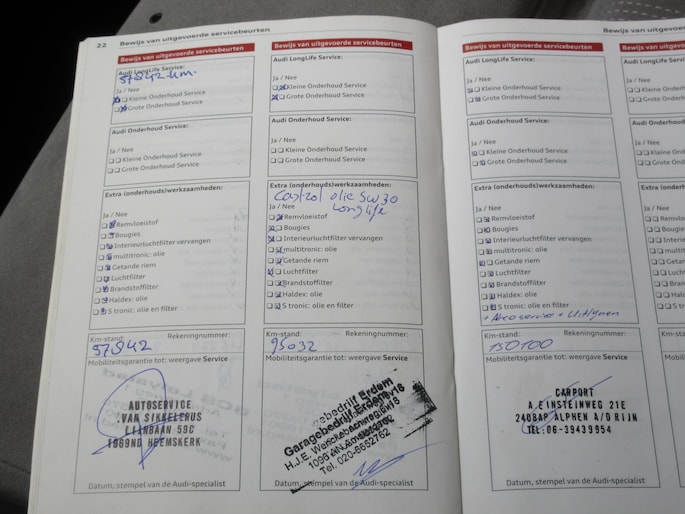 22
Bewijs van uitgevoerde servicebeurten
Bewijs van uitgevoerde servicebeurten
Audi LongLife Service:
57942 km.
Ja / Nee
Kleine Onderhoud Service
Grote Onderhoud Service
Audi Onderhoud Service:
Ja / Nee
Kleine Onderhoud Service
Grote Onderhoud Service
Extra (onderhouds)werkzaamheden:
Ja / Nee
Remvloeistof
Bougies
Interieurluchtfilter vervangen
multitronic: olie
Getande riem
Luchtfilter
Brandstoffilter
Haldex: olie
S tronic: olie en filter
Km-stand: Rekeningnummer:
57942
Mobiliteitsgarantie tot: weergave Service
AUTOSERVICE
VAN SIKKELERUS
LIJNBAAN 59C
1969ND HEEMSKERK
Datum, stempel van de Audi-specialist
Bewijs van uitgevoerde servicebeurten
Audi LongLife Service:
Ja / Nee
Kleine Onderhoud Service
Grote Onderhoud Service
Audi Onderhoud Service:
Ja / Nee
Kleine Onderhoud Service
Grote Onderhoud Service
Extra (onderhouds)werkzaamheden:
Castrol olie 5w30
Longlife
Ja / Nee
Remvloeistof
Bougies
Interieurluchtfilter vervangen
multitronic: olie
Getande riem
Luchtfilter
Brandstoffilter
Haldex: olie
S tronic: olie en filter
Km-stand: Rekeningnummer:
95032
Mobiliteitsgarantie tot: weergave Service
Garagebedrijf Erdem
H.J.E. Wenckebachweg
Tel. 020-6652762
Datum, stempel van de Audi-specialist
Bewijs van uitgevoerde
Bewijs van uitgevoerde servicebeurten
Audi LongLife Service:
Ja / Nee
Kleine Onderhoud Service
Grote Onderhoud Service
Audi Onderhoud Service:
Ja / Nee
Kleine Onderhoud Service
Grote Onderhoud Service
Extra (onderhouds)werkzaamheden:
Ja / Nee
Remvloeistof
Bougies
Interieurluchtfilter vervangen
multitronic: olie
Getande riem
Luchtfilter
Brandstoffilter
Haldex: olie
S tronic: olie en filter
+ Aircoservice + Uitlijnen
Km-stand: Rekeningnummer:
150100
Mobiliteitsgarantie tot: weergave Service
CARPORT
A.EINSTEINWEG 21E
2408AP ALPHEN A/D RIJN
TEL:06-39439954
Datum, stempel van de Audi-specialist
Bewijs van uitgevoerde
Audi LongLife Service:
Ja / Nee
Kleine
Grote O
Audi Onderh
Ja / Nee
Kleine
Grote
Extra (onder
Ja / Nee
Remv
Boug
Inter
mult
Geta
Luch
Bran
Hald
S tr
Km-stand:
Mobiliteits
Datum,